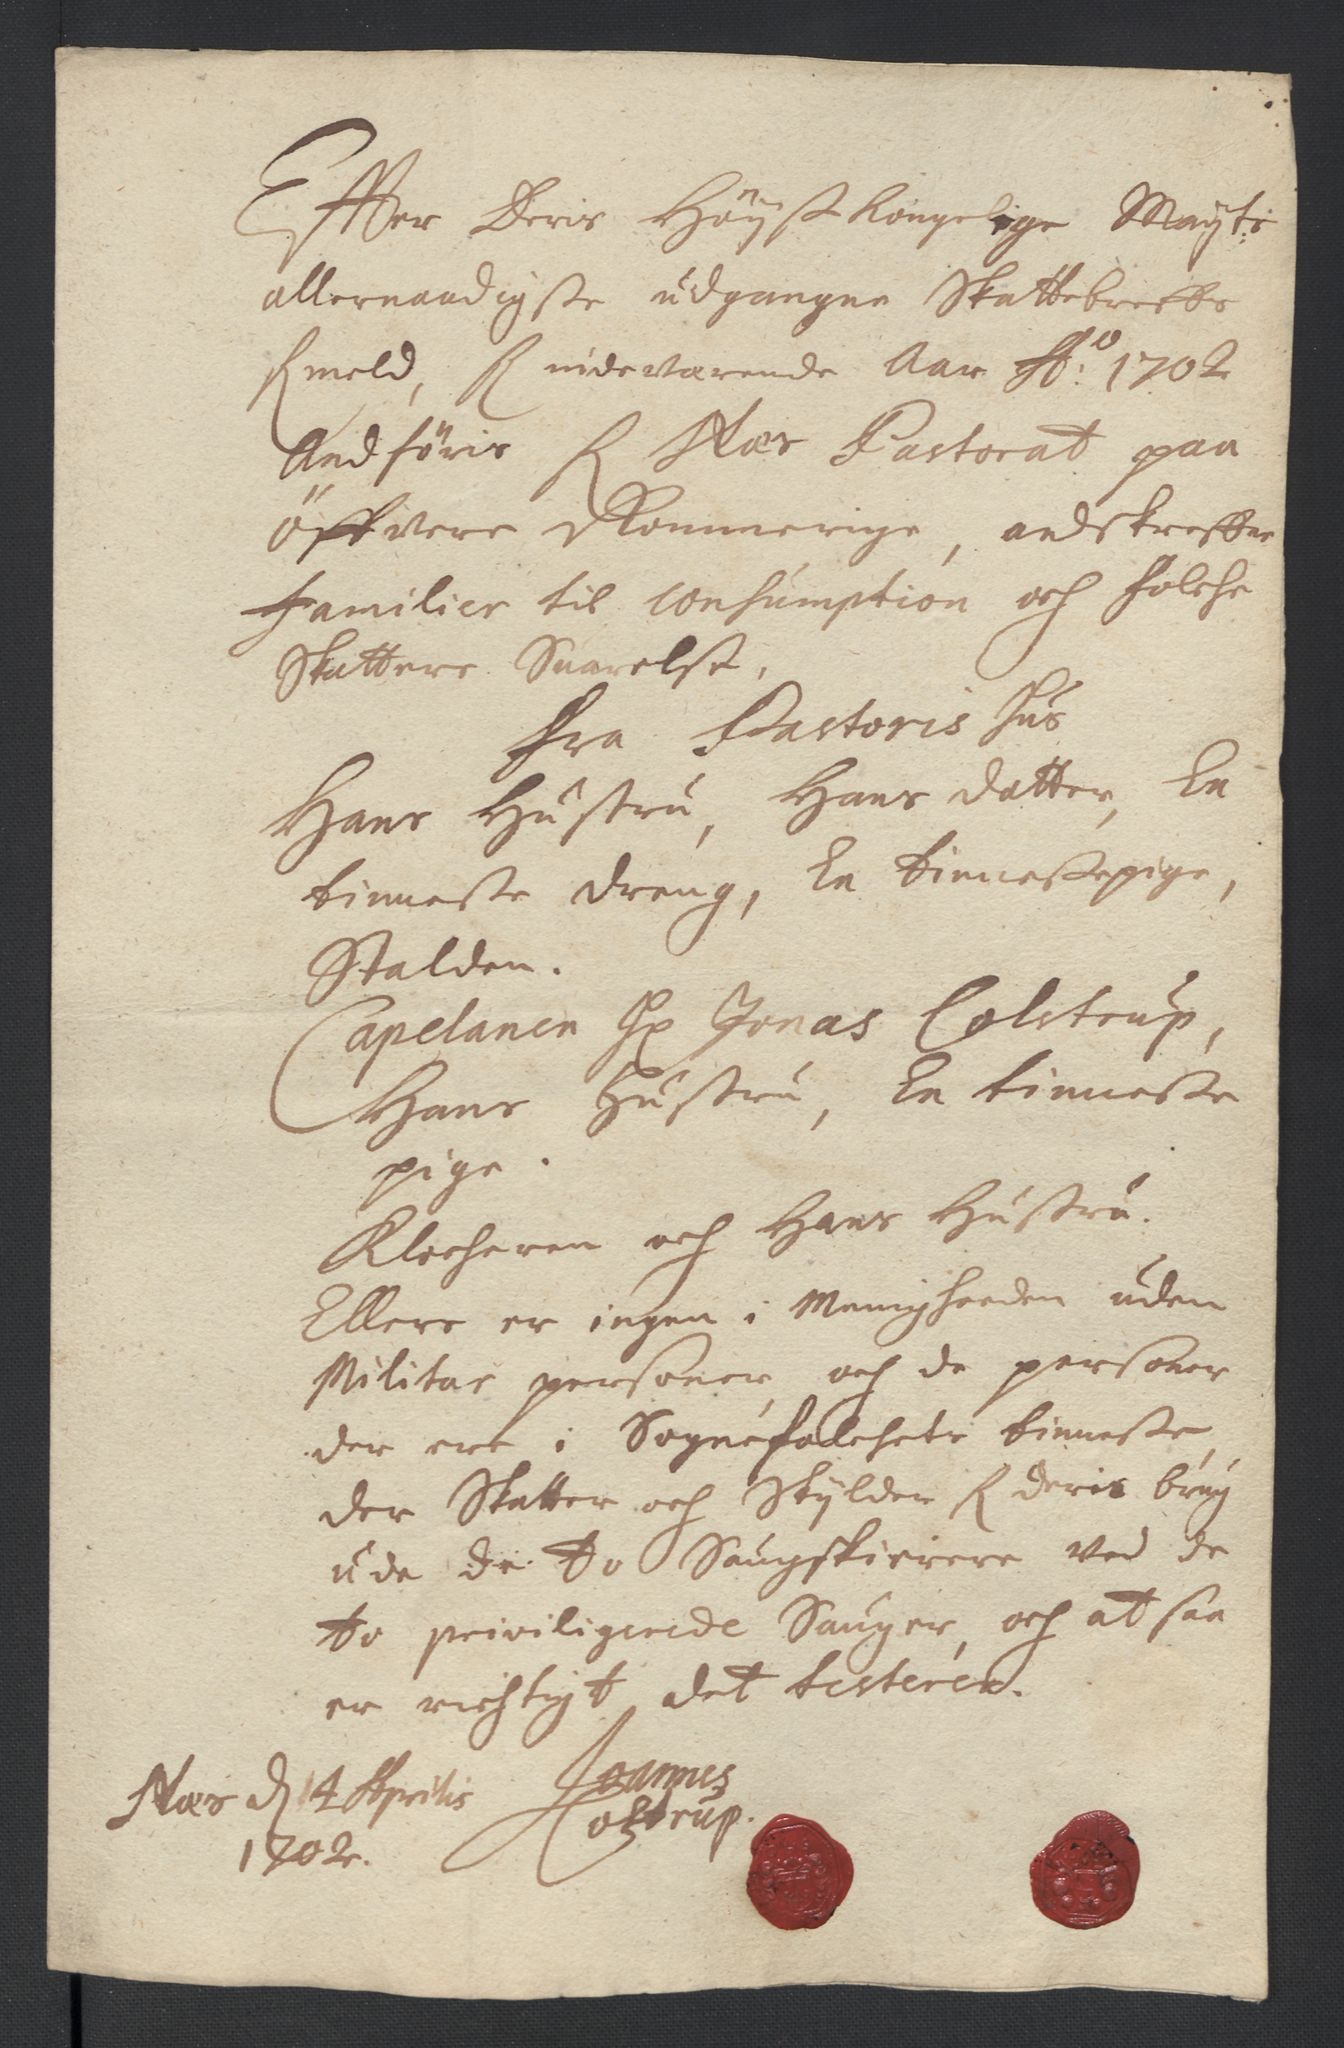 Effter Deris Höÿst Kongelige Maÿts:
allernaadigste udgangne Skattebreffs
formeld, for nidværende Aar Ao: 1702
Andföris for Næs Pastorat paa
Öffvere Rommerige, andskreffne
Familier til Consumption och Folche
Skatters Suarelse.
Fra Pastoris Hus
Hans Hustru, Hans datter, En
tienneste dreng, En tiennestepige,
Stalden.
Capelanen Hr Jonas Colstrup,
Hans Hustru, En tienneste
pige.
Klocheren och Hans Hustru.
Ellers er ingen i Menigheeden uden
Militar personer, och de personer
der ere i Sognefolchets tienneste,
der Skatter och Skÿlder for deris brug
uden de to Saugskierere ved de
to priviligerede Sauger, och at saa
er richtigt det testerer.
Næs d 14 Aprilis
1702.
Joannes
Colstrup.